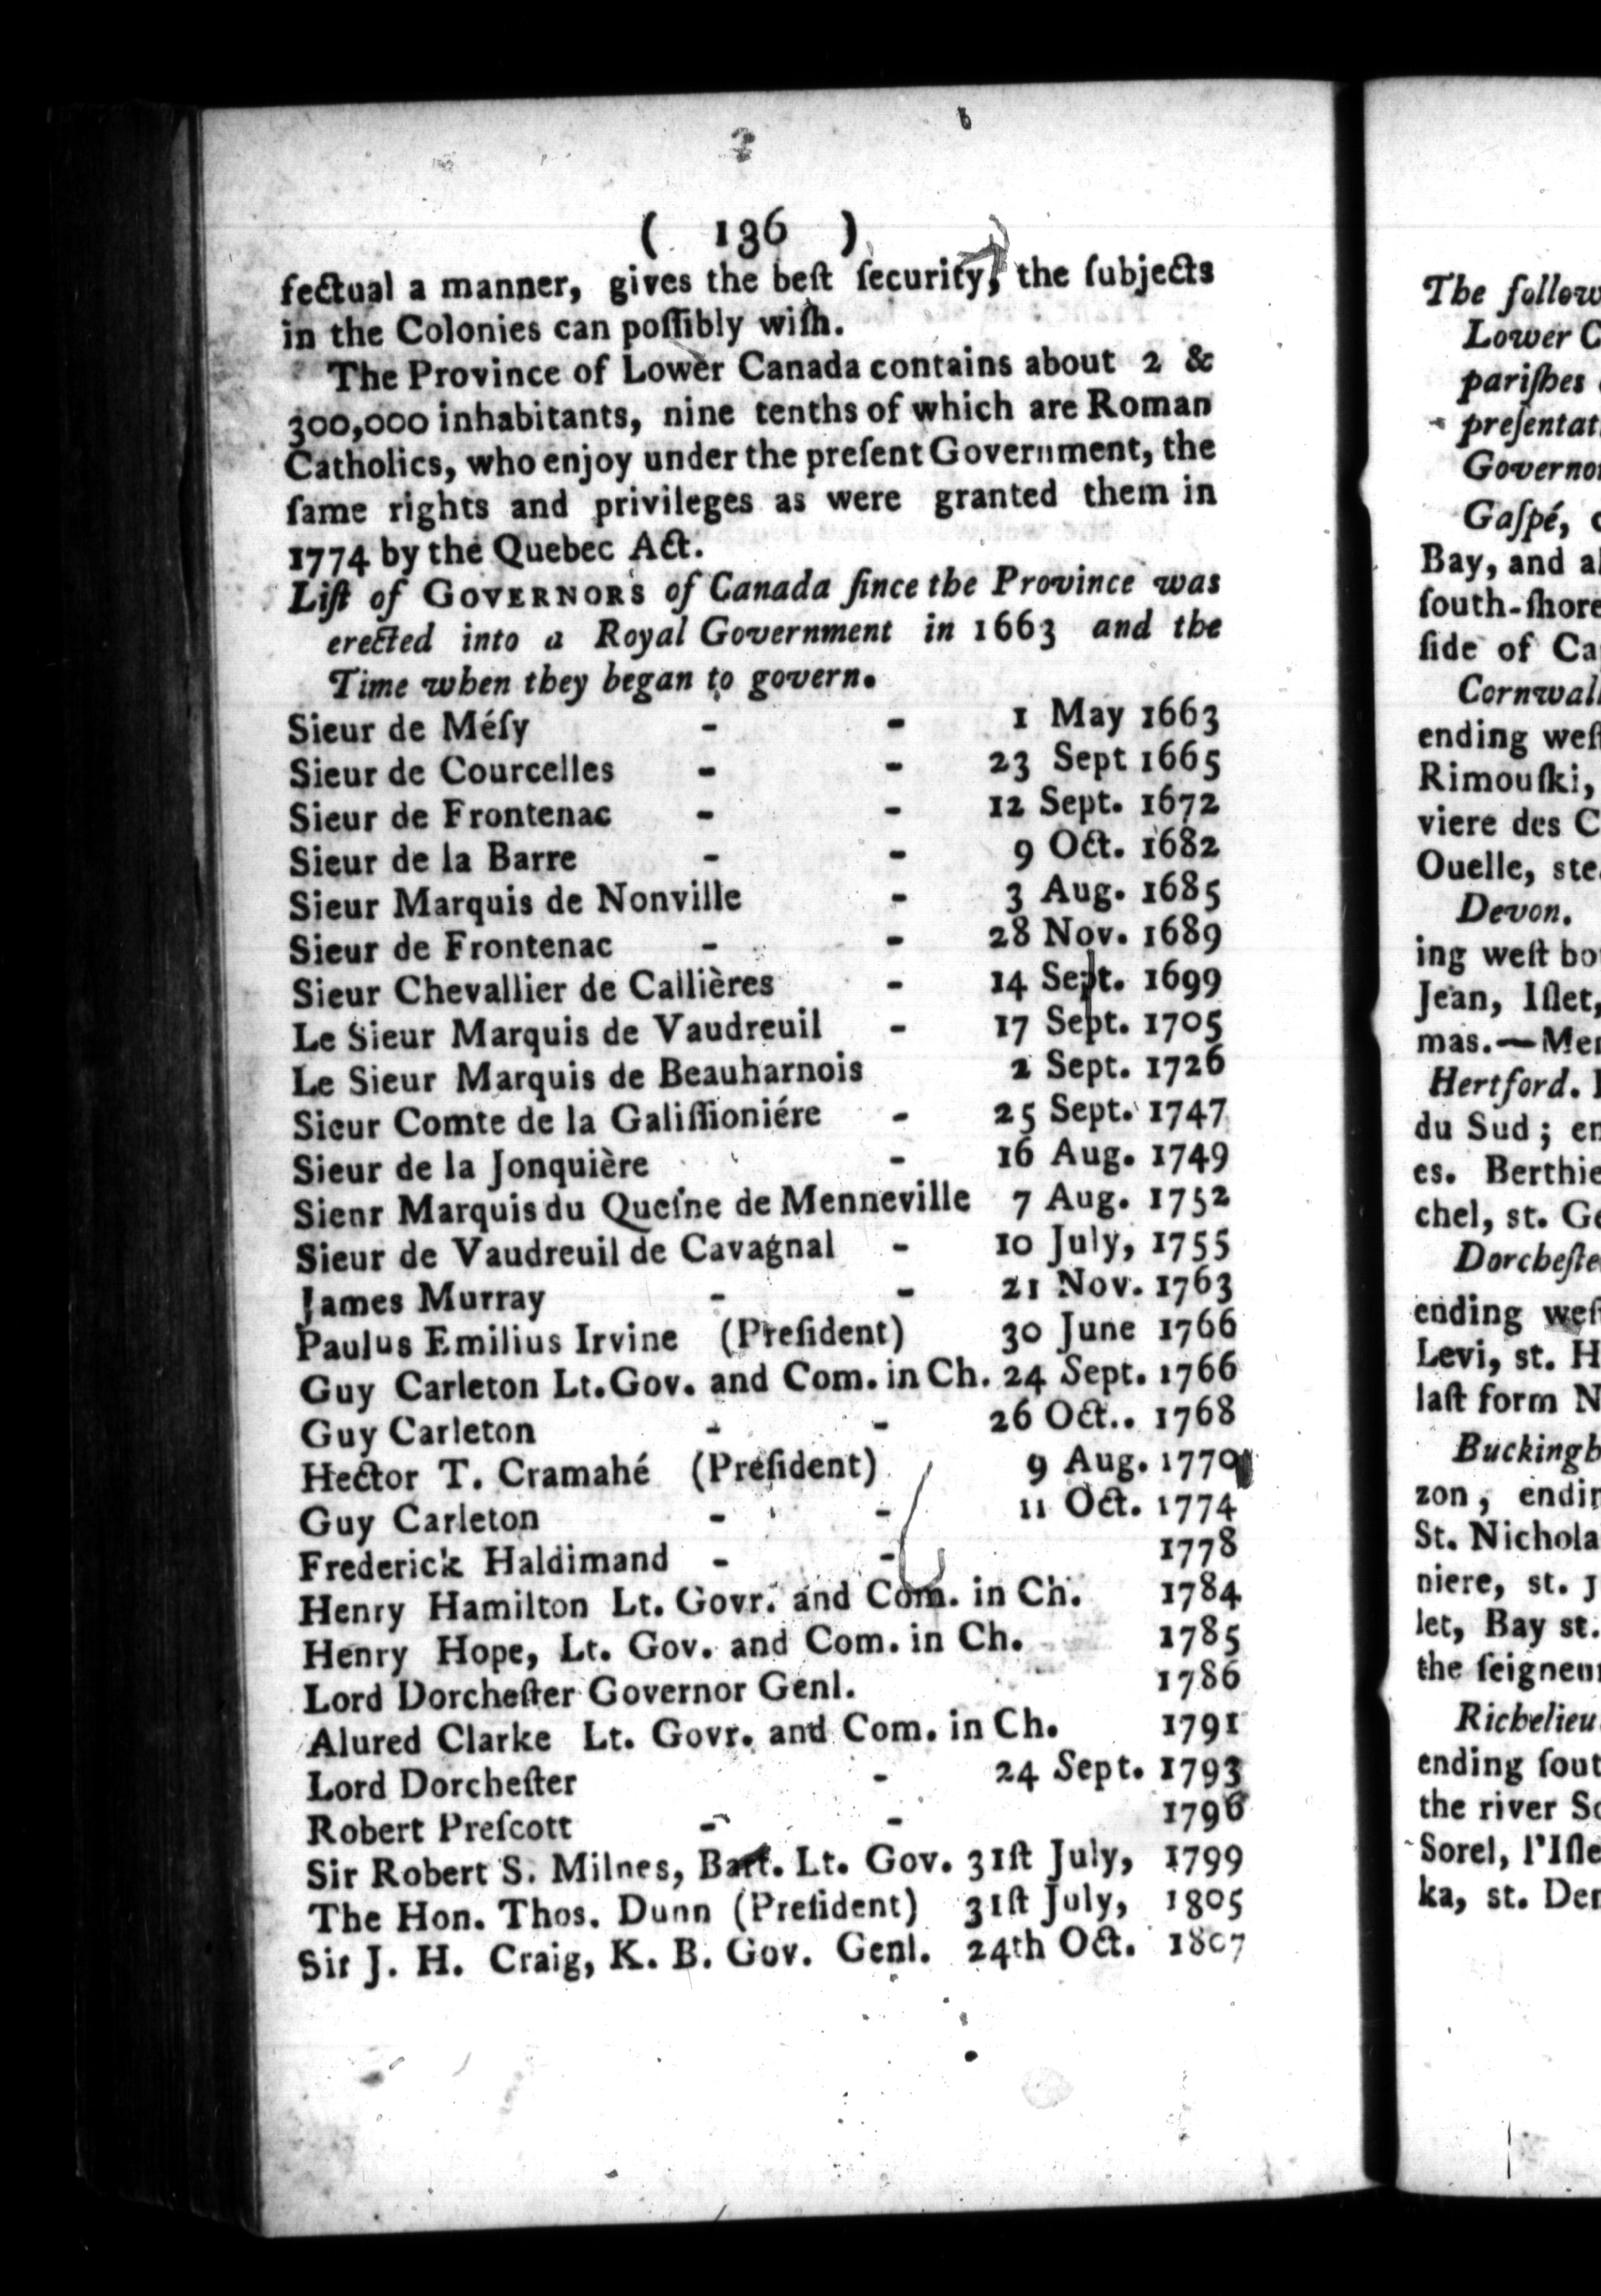 ( 136 )
fectual a manner, gives the beſt ſecurity, the ſubjects
in the Colonies can poſſibly wiſh.
The Province of Lower Canada contains about 2 &
300,000 inhabitants, nine tenths of which are Roman
Catholics, who enjoy under the preſent Government, the
ſame rights and privileges as were granted them in
1774 by the Quebec Act.
Liſt of GOVERNORS of Canada ſince the Province was
erected into a Royal Government in 1663 and the
Time when they began to govern.
Sieur de Méſy - - 1 May 1663
Sieur de Courcelles - - 23 Sept 1665
Sieur de Frontenac - - 12 Sept. 1672
Sieur de la Barre - - 9 Oct. 1682
Sieur Marquis de Nonville - 3 Aug. 1685
Sieur de Frontenac - - 28 Nov. 1689
Sieur Chevallier de Callières - 14 Sept. 1699
Le Sieur Marquis de Vaudreuil - 17 Sept. 1705
Le Sieur Marquis de Beauharnois 2 Sept. 1726
Sieur Comte de la Galiſſioniére - 25 Sept. 1747
Sieur de la Jonquière - 16 Aug. 1749
Sienr Marquis du Queſne de Menneville 7 Aug. 1752
Sieur de Vaudreuil de Cavagnal - 10 July, 1755
James Murray - - 21 Nov. 1763
Paulus Emilius Irvine (Preſident) 30 June 1766
Guy Carleton Lt.Gov. and Com. in Ch. 24 Sept. 1766
Guy Carleton - - 26 Oct.. 1768
Hector T. Cramahé (Preſident) 9 Aug. 1770
Guy Carleton - - 11 Oct. 1774
Frederick Haldimand - - 1778
Henry Hamilton Lt. Govr. and Com. in Ch. 1784
Henry Hope, Lt. Gov. and Com. in Ch. 1785
Lord Dorcheſter Governor Genl. 1786
Alured Clarke Lt. Govr. and Com. in Ch. 1791
Lord Dorcheſter - 24 Sept. 1793
Robert Preſcott - - 1796
Sir Robert S. Milnes, Bart. Lt. Gov. 31ſt July, 1799
The Hon. Thos. Dunn (Preſident) 31ſt July, 1805
Sir J. H. Craig, K. B. Gov. Genl. 24th Oct. 1807
The follow
Lower C
pariſhes
preſentat
Governo
Gaſpé,
Bay, and al
ſouth-ſhore
ſide of Ca
Cornwall
ending weſt
Rimouſki,
viere des C
Ouelle, ste.
Devon.
ing weſt bo
Jean, Iſlet,
mas.—Mer
Hertford.
du Sud; en
es. Berthie
chel, st. Ge
Dorcheſte
ending weſt
Levi, st. H
laſt form N
Buckingh
zon, endin
St. Nichola
niere, st. J
let, Bay st.
the ſeigneur
Richelieu.
ending ſout
the river So
Sorel, l'Iſle
ka, st. Den